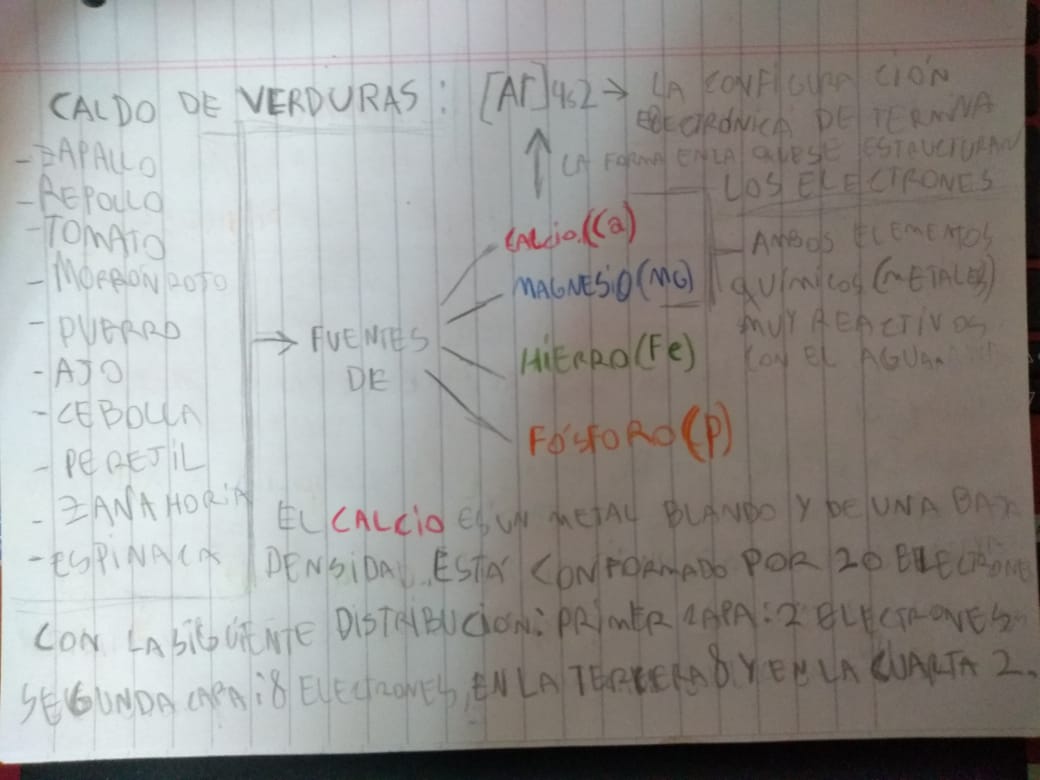 CALDO DE VERDURAS: [Ar]4s2 → LA CONFIGURACIÓN
ELECTRÓNICA DETERMINA
LA FORMA EN LA QUE SE ESTRUCTURAN
LOS ELECTRONES
- ZAPALLO
- REPOLLO
- TOMATO
- MORRÓN ROJO
- PUERRO
- AJO
- CEBOLLA
- PEREJIL
- ZANAHORIA
- ESPINACA
→ FUENTES
DE
CALCIO (Ca)
MAGNESIO (MG)
HIERRO (Fe)
FÓSFORO (P)
AMBOS ELEMENTOS
QUÍMICOS (METALES)
MUY REACTIVOS
CON EL AGUA
EL CALCIO ES UN METAL BLANDO Y DE UNA BAJA
DENSIDAD. ESTÁ CONFORMADO POR 20 ELECTRONES
CON LA SIGUIENTE DISTRIBUCIÓN: PRIMER CAPA: 2 ELECTRONES
SEGUNDA CAPA: 8 ELECTRONES, EN LA TERCERA 8 Y EN LA CUARTA 2.